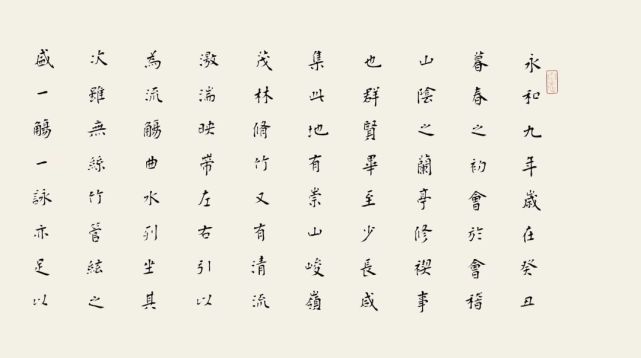 永和九年歲在癸丑
暮春之初會於會稽
山陰之蘭亭修禊事
也群賢畢至少長咸
集此地有崇山峻嶺
茂林脩竹又有清流
激湍映帶左右引以
為流觴曲水列坐其
次雖無絲竹管絃之
盛一觴一詠亦足以